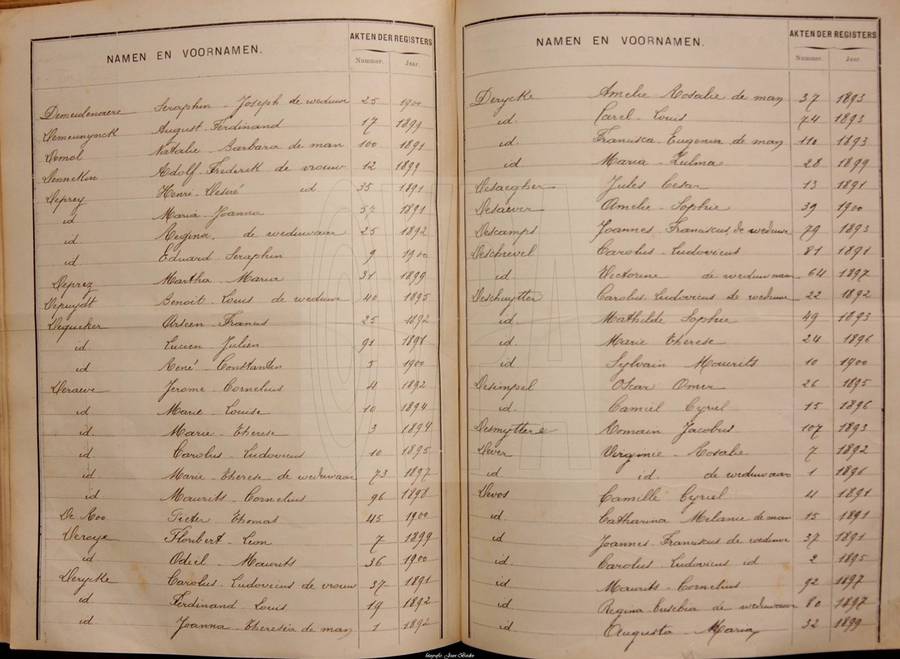 NAMEN EN VOORNAMEN. AKTEN DER REGISTERS
Nummer. Jaar.
Demeulenaere Seraphin - Joseph de weduwe 25 1900
Demeunynck August - Ferdinand 17 1899
Demol Natalie - Barbara de man 100 1891
Dennekin Adolf - Frederik de vrouw 12 1899
Deprez Henri - Désiré id 35 1891
id Maria - Joanna 57 1891
id Regina, de weduwaar 25 1892
id Eduard Seraphin 9 1900
Deprez Martha - Maria 31 1899
Depuydt Benoit - Louis de weduwe 40 1895
Dequeker Arseen - Frans 25 1892
id Lucien Julien 91 1896
id René - Constantin 5 1900
Deraeve Jerome - Cornelius 4 1892
id. Marie - Louise 10 1894
id. Marie - Therese 3 1894
id. Carolus - Ludovicus 10 1895
id. Marie - Therese de weduwaar 73 1897
id Maurits - Cornelius 96 1898
De Roo Pieter Thomas 45 1900
Deroye Floribert - Leon 7 1899
id. Odiel - Maurits 36 1900
Derycke Carolus - Ludovicus de vrouw 37 1891
id Ferdinand - Louis 19 1892
id Joanna - Theresia de man 1 1892
NAMEN EN VOORNAMEN. AKTEN DER REGISTERS
Nummer. Jaar.
Derycke Amelie - Rosalie de man 37 1893
id Carel - Louis 74 1893
id. Francisca Eugenia de man 110 1893
id Maria - Zulma 28 1899
Desaegher Jules Cesar 13 1891
Desaever Amelie - Sophie 39 1900
Descamps Joannes Franciskus, de weduwe 79 1893
Deschrevel Carolus - Ludovicus 81 1891
id Victorine de weduwman 64 1897
Deschuytter Carolus - Ludovicus de weduwe 22 1892
id. Mathilde Sophie 49 1893
id. Marie Therese 24 1896
id Sylvain Maurits 10 1900
Desimpel Oscar Omer 26 1895
id. Camiel Cyriel 15 1896
Desmyttere Romain Jacobus 107 1893
Dever Virginie - Rosalie 7 1892
id id. de weduwaar 1 1896
Devos Camille Cyriel 4 1891
id Catharina Melanie de man 15 1891
id Joannes - Franciskus de weduwe 37 1891
id Carolus Ludovicus id 2 1895
id Maurits - Cornelius 92 1897
id Regina Eusebia de weduwaar 80 1897
id Augusta - Maria 32 1899
fotografie Jean Borke